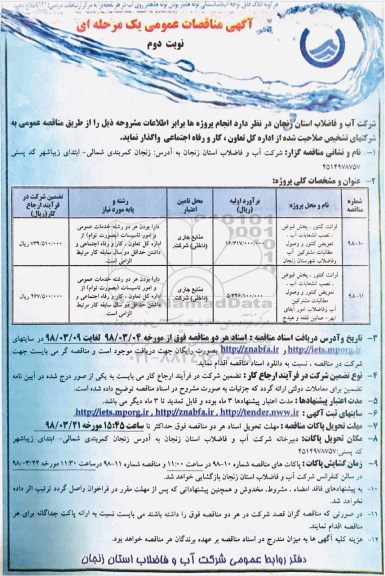 آگهی مناقصات عمومی یک مرحله ای
نوبت دوم
شرکت آب و فاضلاب استان زنجان در نظر دارد انجام پروژه ها برابر اطلاعات مشروحه ذیل را از طریق مناقصه عمومی به
شرکتهای تشخیص صلاحیت شده از اداره کل تعاون ، کار و رفاه اجتماعی واگذار نماید.
۱- نام و نشانی مناقصه گزار: شرکت آب و فاضلاب استان زنجان به آدرس: زنجان کمربندی شمالی- ابتدای زیباشهر کد پستی
۴۵۱۴۹۷۸۷۵۷
۲- عنوان و مشخصات کلی پروژه:
شماره مناقصه
نام و محل پروژه
برآورد اولیه (ریال)
محل تامین اعتبار
رشته و پایه مورد نیاز
تضمین شرکت در فرآیند ارجاع کار(ریال)
۹۸-۱۰
قرائت کنتور ، پخش قبوض ، نصب انشعابات آب ، تعویض کنتور و وصول مطالبات مشترکین آب وفاضلاب شهرستان زنجان
منابع جاری (داخلی) شرکت
دارا بودن هر دو رشته خدمات عمومی و امور تاسیسات (بصورت توام) از اداره کل تعاون ، کار و رفاه اجتماعی و داشتن حداقل دو سال سابقه کار مرتبط الزامی است.
۷۳۹/۵۱۰/۰۰۰ ریال
۹۸-۱۱
قرائت کنتور ، پخش قبوض ، نصب انشعابات آب ، تعویض کنتور و وصول مطالبات مشترکین آب وفاضلاب امور آبفای ابهر- صائین قلعه و هیدج
منابع جاری (داخلی) شرکت
دارا بودن هر دو رشته خدمات عمومی و امور تاسیسات (بصورت توام) از اداره کل تعاون ، کار و رفاه اجتماعی و داشتن حداقل دو سال سابقه کار مرتبط الزامی است.
۴۶۷/۵۰۰/۰۰۰ ریال
۳- تاریخ وآدرس دریافت اسناد مناقصه : اسناد هر دو مناقصه فوق از مورخه ۹۸/۰۳/۰۴ لغایت ۹۸/۰۳/۰۹ در سایتهای
http://iets.mporg.ir و http://znabfa.ir بصورت رایگان جهت دریافت موجود است و مناقصه گر می بایست جهت
شرکت در مناقصه ، نسبت به دانلود اسناد مناقصه اقدام نماید.
۴- نوع تضمین شرکت در فرآیند ارجاع کار: تضمین شرکت در فرآیند ارجاع کار می بایست به یکی از صور درج شده در آیین نامه
تضمین برای معاملات دولتی ارائه گردد که جزئیات به صورت مشروح در اسناد مناقصه توضیح داده شده است.
۵- مدت اعتبار پیشنهادها : مدت اعتبار پیشنهادها ۳ ماه بوده و قابل تمدید تا ۳ ماه دیگر می باشد.
۶- سایتهای ثبت آگهی : http://iets.mporg.ir , http://znabfa.ir , http://tender.nww.ir
۷- مهلت تحویل پاکات مناقصه : مهلت تحویل اسناد هر دو مناقصه فوق حداکثر تا ساعت ۱۵:۴۵ مورخه ۹۸/۰۳/۲۱
۸- مکان تحویل پاکات: دبیرخانه شرکت آب و فاضلاب استان زنجان به آدرس زنجان کمربندی شمالی- ابتدای زیباشهر
کدپستی: ۴۵۱۴۹۷۸۷۵۷
۹- زمان گشایش پاکات : پاکات های مناقصه شماره ۱۰-۹۸ در ساعت ۱۱:۰۰ و مناقصه شماره ۱۱-۹۸ درساعت ۱۱:۳۰ مورخه ۹۸/۰۳/۲۲
در سالن کنفرانس شرکت آب و فاضلاب استان زنجان بازگشایی خواهد شد.
۱۰- به پیشنهادهای فاقد امضاء ، مشروط ، مخدوش و همچنین پیشنهاداتی که پس از مهلت مقرر در فراخوان واصل گردد ترتیب اثر داده
نخواهد شد.
۱۱- در صورتی که مناقصه گران قصد شرکت در هر دو مناقصه فوق را داشته باشند می بایست نسبت به ارائه پاکت جداگانه برای هر
مناقصه اقدام نمایند.
۱۲- هزینه کلیه آگهی ها به میزان مندرج در اسناد مناقصه بر عهده برندگان هر مناقصه خواهد بود.
دفتر روابط عمومی شرکت آب و فاضلاب استان زنجان